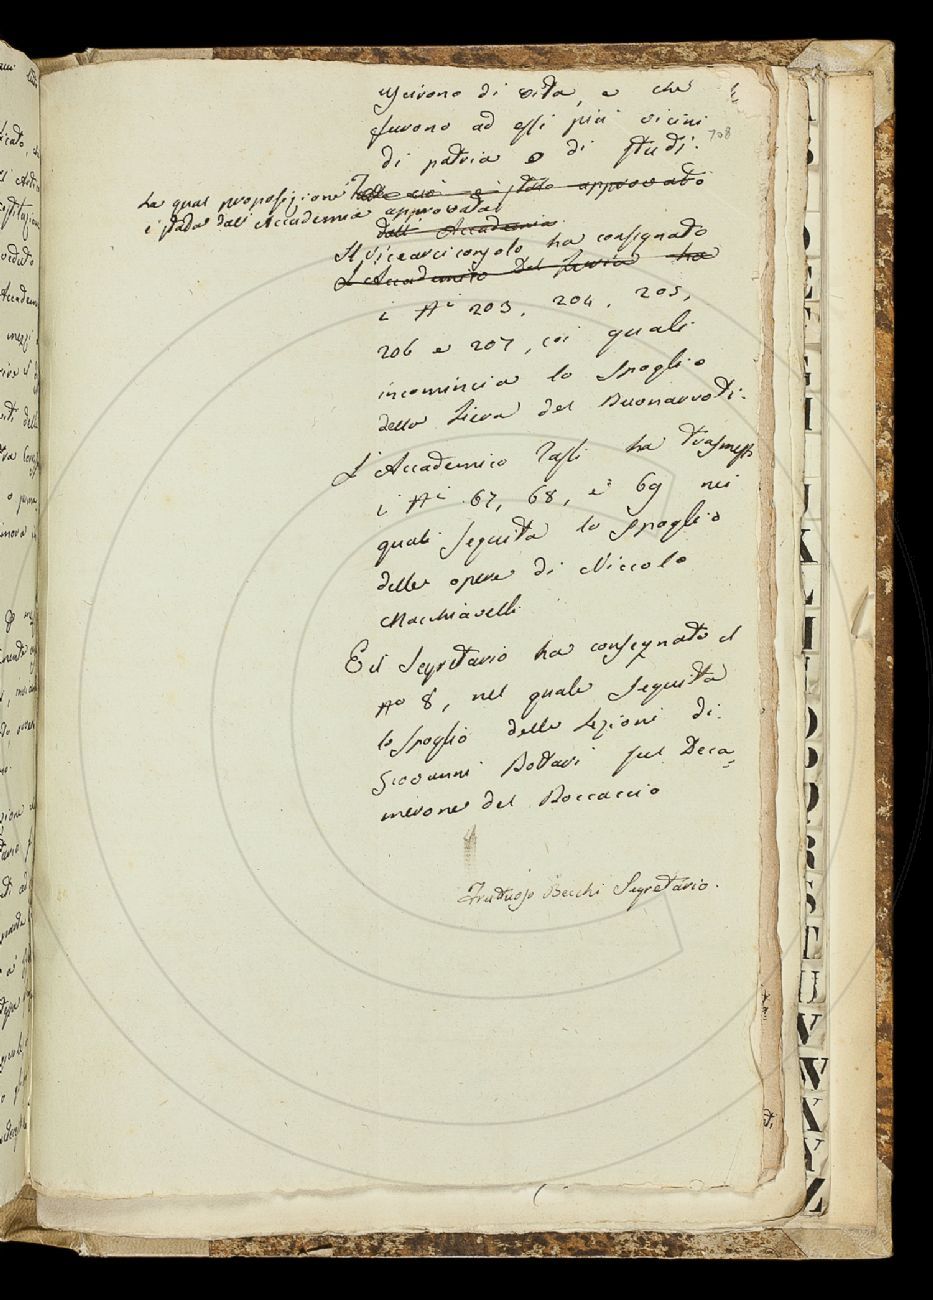 uscirono di vita, e che
furono ad essi più vicini
708
di patria o di studj.
La qual proposizione
è stata dall'Accademia approvata
ciò è stato approvato
dall'Accademia
Il Vicearciconsolo ha consegnato
L'Accademico Del Furia ha
i Ni 203, 204, 205,
206 e 207, coi quali
incomincia lo Spoglio
della Fiera del Buonarroti.
L'Accademico ha trasmessi
i Ni 67, 68, e 69 nei
quali seguita lo spoglio
delle opere di Niccolo
Macchiavelli
E il Segretario ha consegnato il
No 8, nel quale seguita
lo Spoglio delle Lezioni di
Giovanni Bottari sul Deca=
merone del Boccaccio
Fruttuoso Becchi Segretario.
K
L
T
U
V
W
X
Y
Z